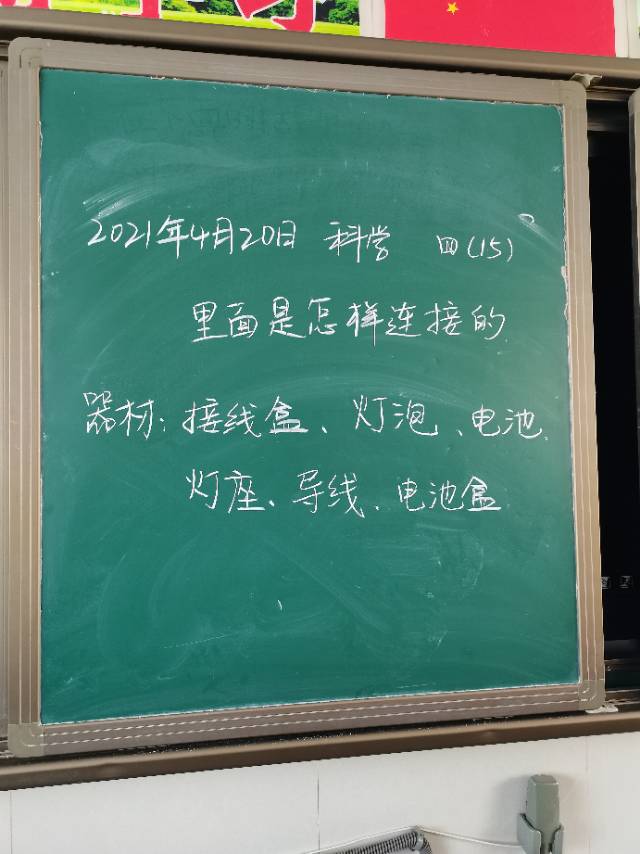 2021年4月20日 科学 四(15)
里面是怎样连接的
器材：接线盒、灯泡、电池、
灯座、导线、电池盒